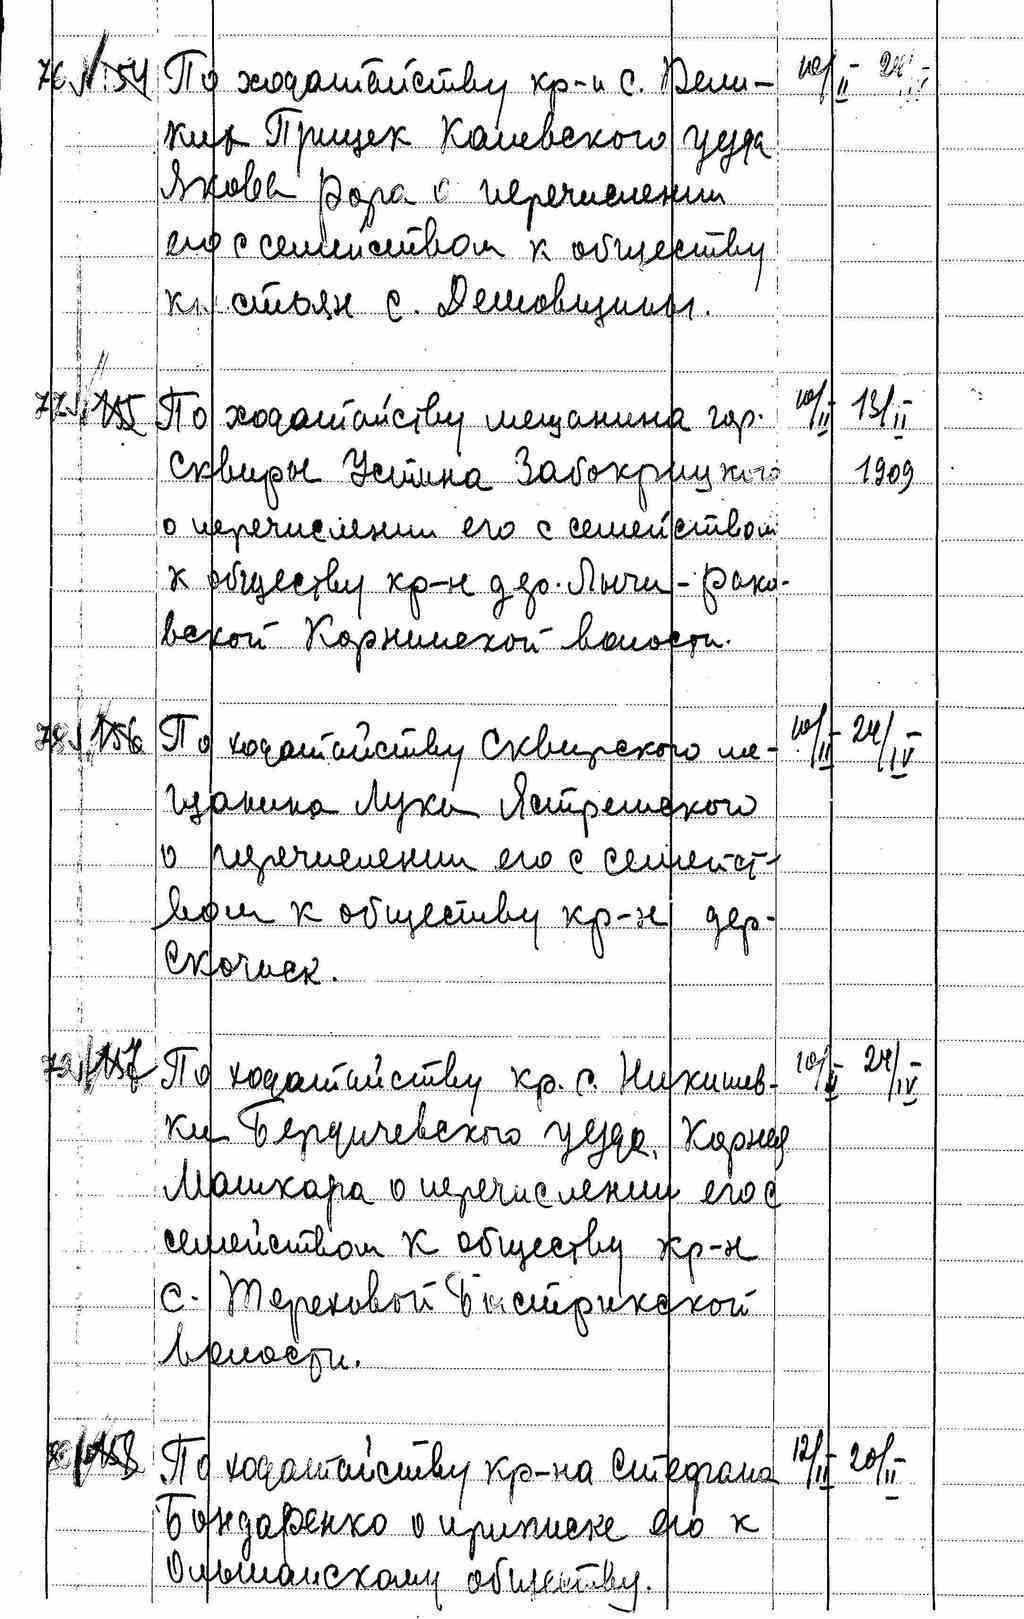 76 154 По ходатайству кр-н с. Вели- 10/II
ких Прицек Каневского уезда
Якова Рора о перечислении
его с семейством к обществу
крестьян с. Демовщины.
77 155 По ходатайству мещанина гор. 10/II 13/II
Сквиры Устина Забокрицкого 1909
о перечислении его с семейством
к обществу кр-н дер. Лычи-Рако-
вской Корнинской волости.
78 156 По ходатайству Сквирского ме- 10/II 24/IV
щанина Луки Ястремского
о перечислении его с семейст-
вом к обществу кр-н дер.
Скочиск.
79 157 По ходатайству кр. с. Никишев- 10/II 24/IV
ки Бердичевского уезда, Корнея
Машкара о перечислении его с
семейством к обществу кр-н
с. Тереховой Быстрикской
волости.
158 По ходатайству кр-на Стефана 12/II 20/II
Бондаренко о приписке его к
Ольшанскому обществу.